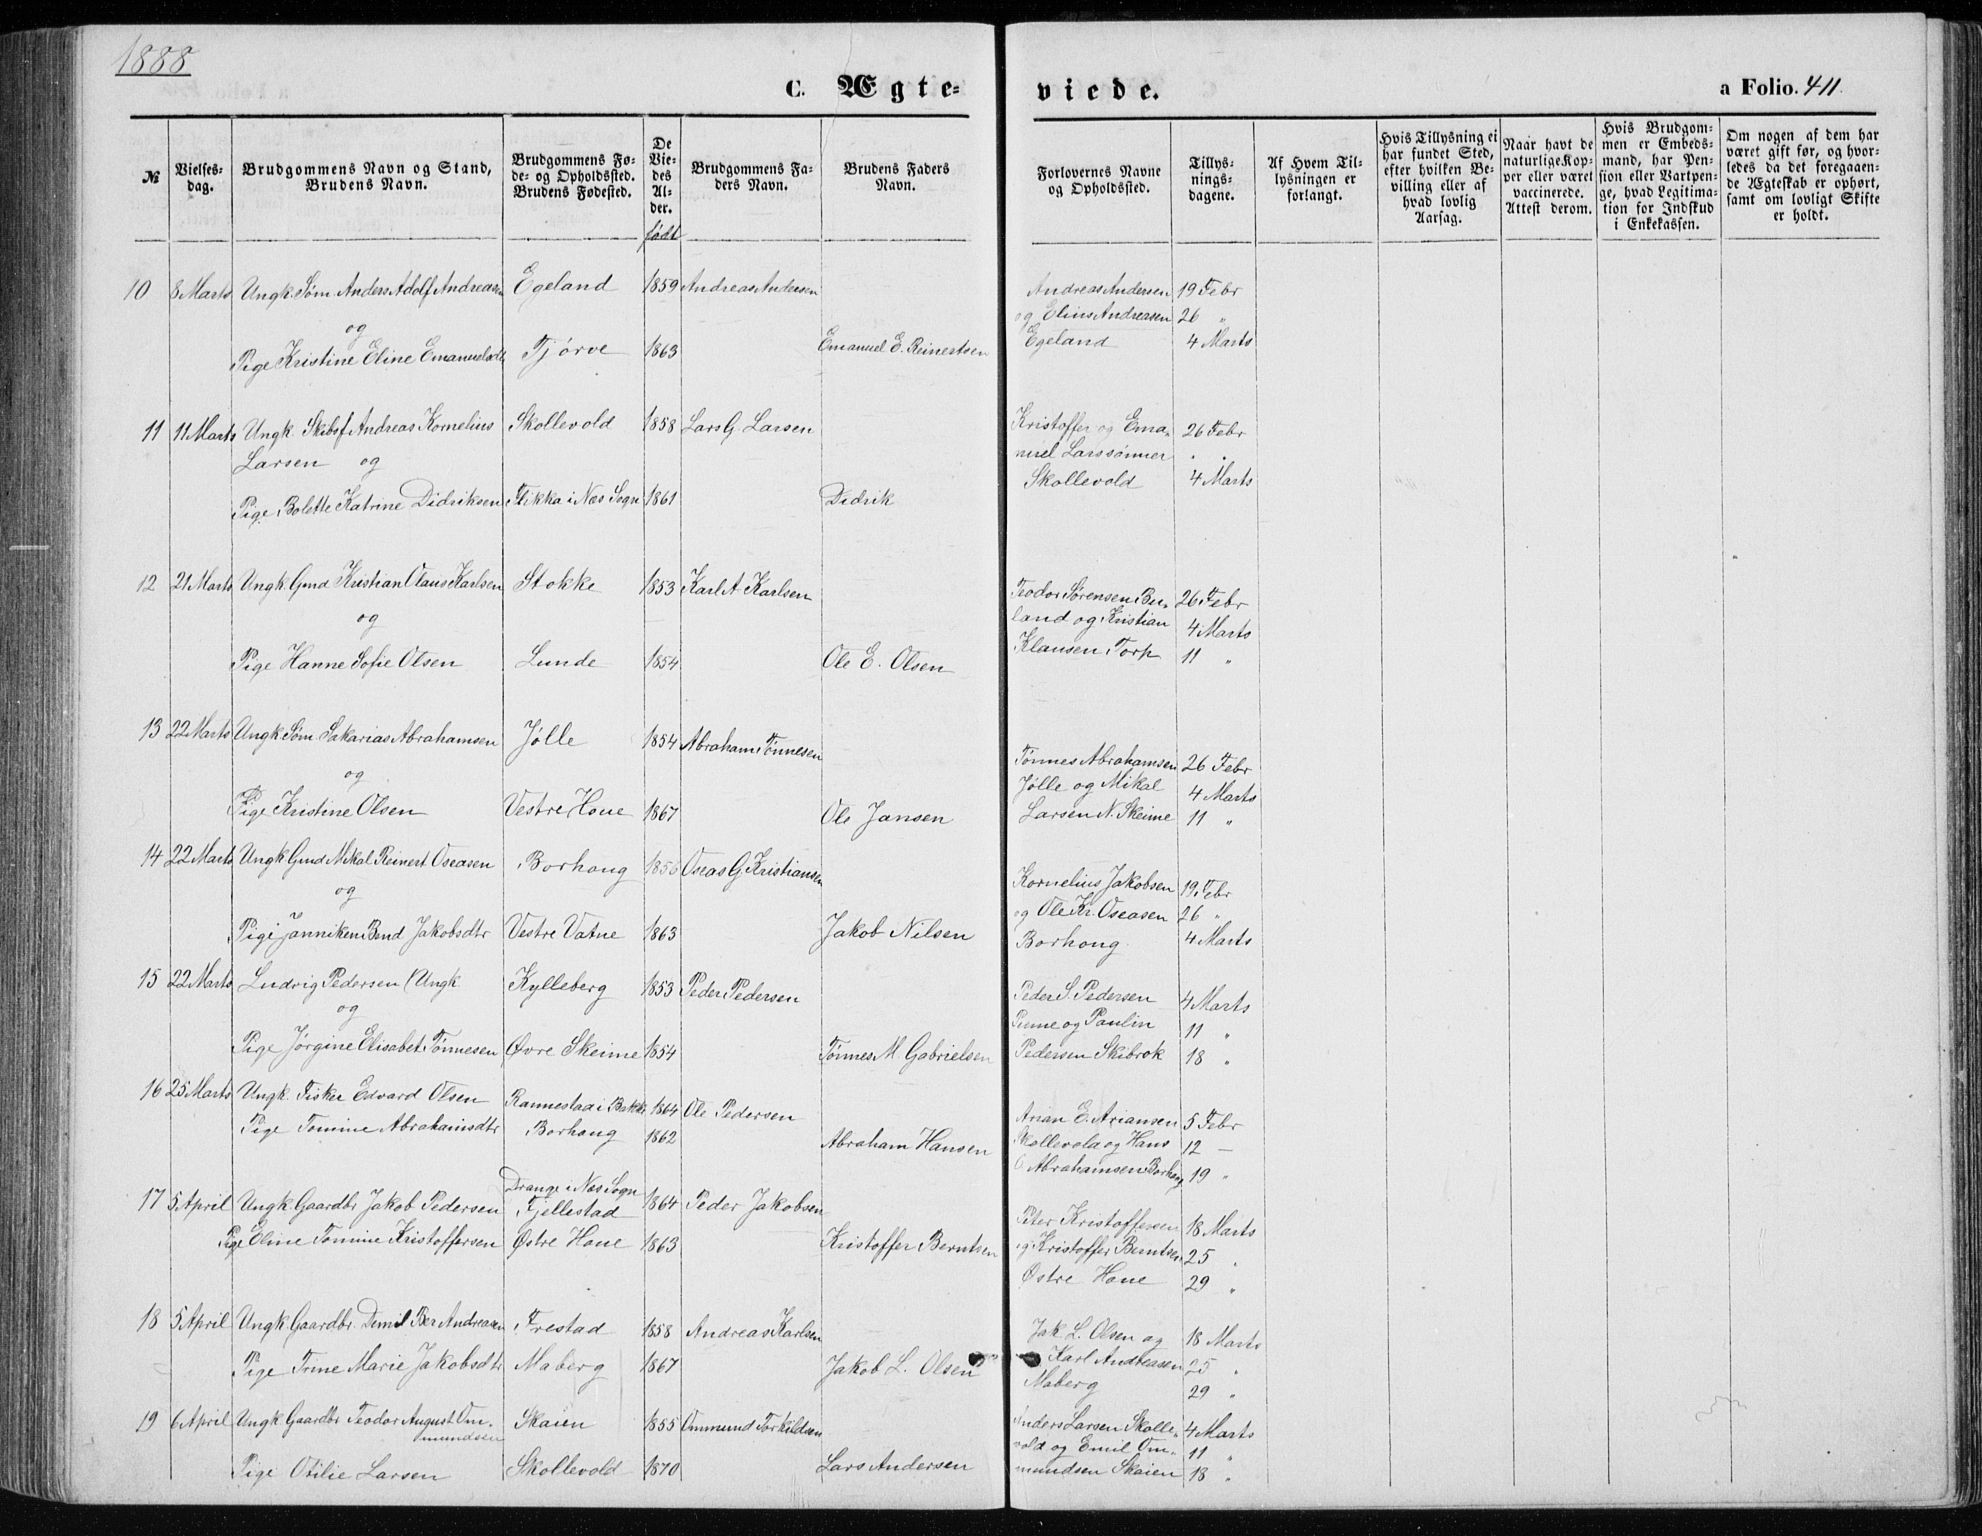 1888
C. Ægte=
viede.
a Folio. 411.
№
Vielses-
dag.
Brudgommens Navn og Stand,
Brudens Navn.
Brudgommens Fø-
de- og Opholdssted.
Brudens Fødested.
De
Vie-
des
Al-
der.
født
Brudgommens Fa-
ders Navn.
Brudens Faders
Navn.
Forlovernes Navne
og Opholdssted.
Tillys-
nings-
dagene.
Af Hvem Til-
lysningen er
forlangt.
Hvis Tillysning ei
har fundet Sted,
efter hvilken Be-
villing eller af
hvad lovlig
Aarsag.
Naar havt de
naturlige Kop-
per eller været
vaccinerede.
Attest derom.
Hvis Brudgom-
men er Embeds-
mand, har Pen-
sion eller Vartpen-
ge, hvad Legitima-
tion for Indskud
i Enkekassen.
Om nogen af dem har
været gift før, og hvor-
ledes da det foregaaen-
de Ægteskab er ophørt,
samt om lovligt Skifte
er holdt.
10 8 Marts Ungk. Søm. Anders Adolf Andreasen Egeland 1859 Andreas Andersen
Andreas Andersen 19 Febr
og Elius Andreasen 26 "
og
Pige Kristine Eline Emanuelsdtr Tjørve 1863 Emanuel E. Reinertsen
Egeland 4 Marts
11 11 Marts Ungk. Skibsf Andreas Kornelius Skollevold 1858 Lars G. Larsen
Larsen og
Kristoffer og Ema-
nuel Larssønner
Skollevold
26 Febr
4 Marts
Pige Bolette Katrine Didriksen Flikka i Nes Sogn 1861 Didrik
12 21 Marts Ungk Gmd Kristian Olaus Karlsen Stokke 1853 Karl A Karlsen
og
Teodor Sørensen Bu-
land og Kristian
Klausen Torp
26 Febr
4 Marts
11 "
Pige Hanne Sofie Olsen Lunde 1854 Ole E. Olsen
13 22 Marts Ungk Søm Sakarias Abrahamsen Jølle 1854 Abraham Tønnesen
og
Tønnes Abrahamsen 26 Febr
Jølle og Mikal 4 Marts
Larsen N. Skeime 11 "
Pige Kristine Olsen Vestre Houe 1867 Ole Jansen
14 22 Marts Ungk Gmd Mikal Reinert Oseasen Borhoug 1856 Oseas G Kristiansen
og
Kornelius Jakobsen 19 Febr
og Ole Kr. Oseasen 26 "
Borhoug 4 Marts
Pige Janniken Bend Jakobsdtr Vestre Vatne 1863 Jakob Nilsen
15 22 Marts Ludvig Pedersen (Ungk Kylleberg 1853 Peder Pedersen
og
Peder S. Pedersen 4 Marts
og Paulin 11 "
Pedersen Skibrok 18 "
Pige Jørgine Elisabet Tønnesen Øvre Skeime 1854 Tønnes M Gabrielsen
16 25 Marts Ungk. Fisker Edvard Olsen Rannestad i Bakke 1864 Ole Pedersen
Pige Tomine Abrahamsdtr Borhoug 1862 Abraham Hansen
Anan E. Ariansen 5 Febr
Skollevold og Hans 12 —
Abrahamsen Borhoug 19 "
Drange i Nes Sogn
17 5 April Ungk Gaardbr Jakob Pedersen Fjellestad 1864 Peder Jakobsen
Pige Eline Tomine Kristoffersen Østre Houe 1863 Kristoffer Berntsen
Peter Kristoffersen 18 Marts
og Kristoffer Berntsen 25 "
Østre Houe 29 "
18 5 April Ungk Gaardbr. Demil Ber Andreasen Frestad 1858 Andreas Karlsen
Pige Trine Marie Jakobsdtr Maberg 1867 Jakob L. Olsen
Jak L. Olsen og 18 Marts
Karl Andreasen 25 "
Maberg 29 "
19 6 April Ungk Gaardbr Teodor August Om-
mundsen
Skaien 1855 Ommund Torkildsen
Pige Otilie Larsen Skollevold 1870 Lars Andersen
Anders Larsen Skolle- 4 Marts
vold og Emil Om- 11 "
mundsen Skaien 18 "